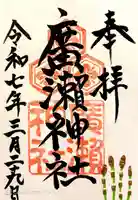 奉拝
廣瀬神社
令和七年三月二九日